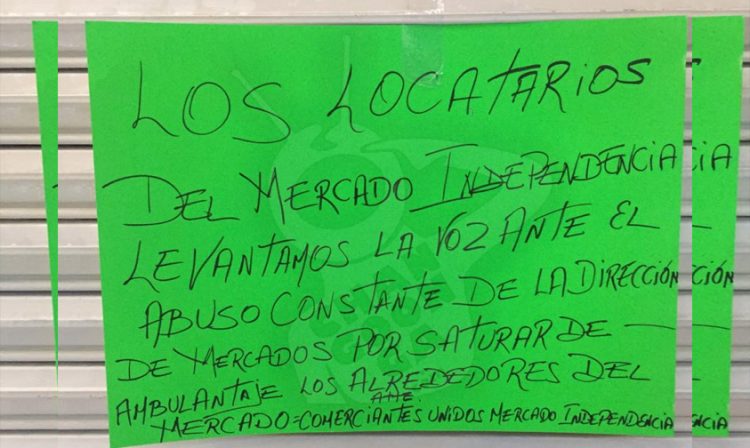 LOS LOCATARIOS
DEL MERCADO INDEPENDENCIA
LEVANTAMOS LA VOZ ANTE EL
ABUSO CONSTANTE DE LA DIRECCIÓN
DE MERCADOS POR SATURAR DE —
AMBULANTAJE LOS ALREDEDORES DEL
MERCADO = COMERCIANTES UNIDOS MERCADO INDEPENDENCIA